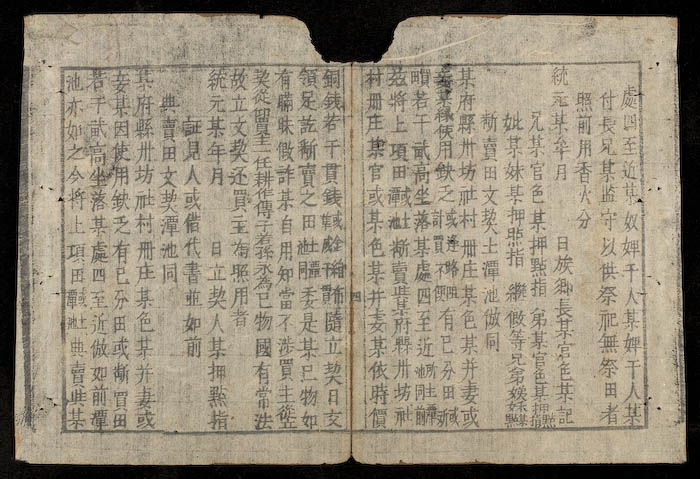 處四至近某奴婢干人某婢干人某
付長兄某監守以供祭祀無祭田者
照前用香火分
統元某年月 日族鄉長某官色某記
兄某官色某押點指 弟某官色某押點指
姊某妹某押點指 繼假等兄弟
斷賣田文契土潭池倣同
某府縣州坊社村冊庄某色某并妻或
使用欽乏或途路阻計買不便有己分田或
畝若干貳高坐落某處四至近土潭池同前
茲將上項田或土潭池斷賣與某府縣州坊社
村冊庄某官或某色某并妻某依時價
銅錢若干貫錢隨立契日交
領足訖斷賣之田土潭池同委是某己物如
有瞞昧假詐某自用知當不涉買主從立
契從買主一任耕作傳子若孫永為己物國有當法
故立文契還買主為照用者
統元某年月 日立契人某押點指
証見人或借代書並如前
典賣田文契潭池同
某府縣州坊社村冊庄某色某并妻或
妾某因使用欽乏有己分田或斷買田
若干貳高坐落某處四至近倣如前潭
池亦如之今將上項田或土潭池典賣與某
四